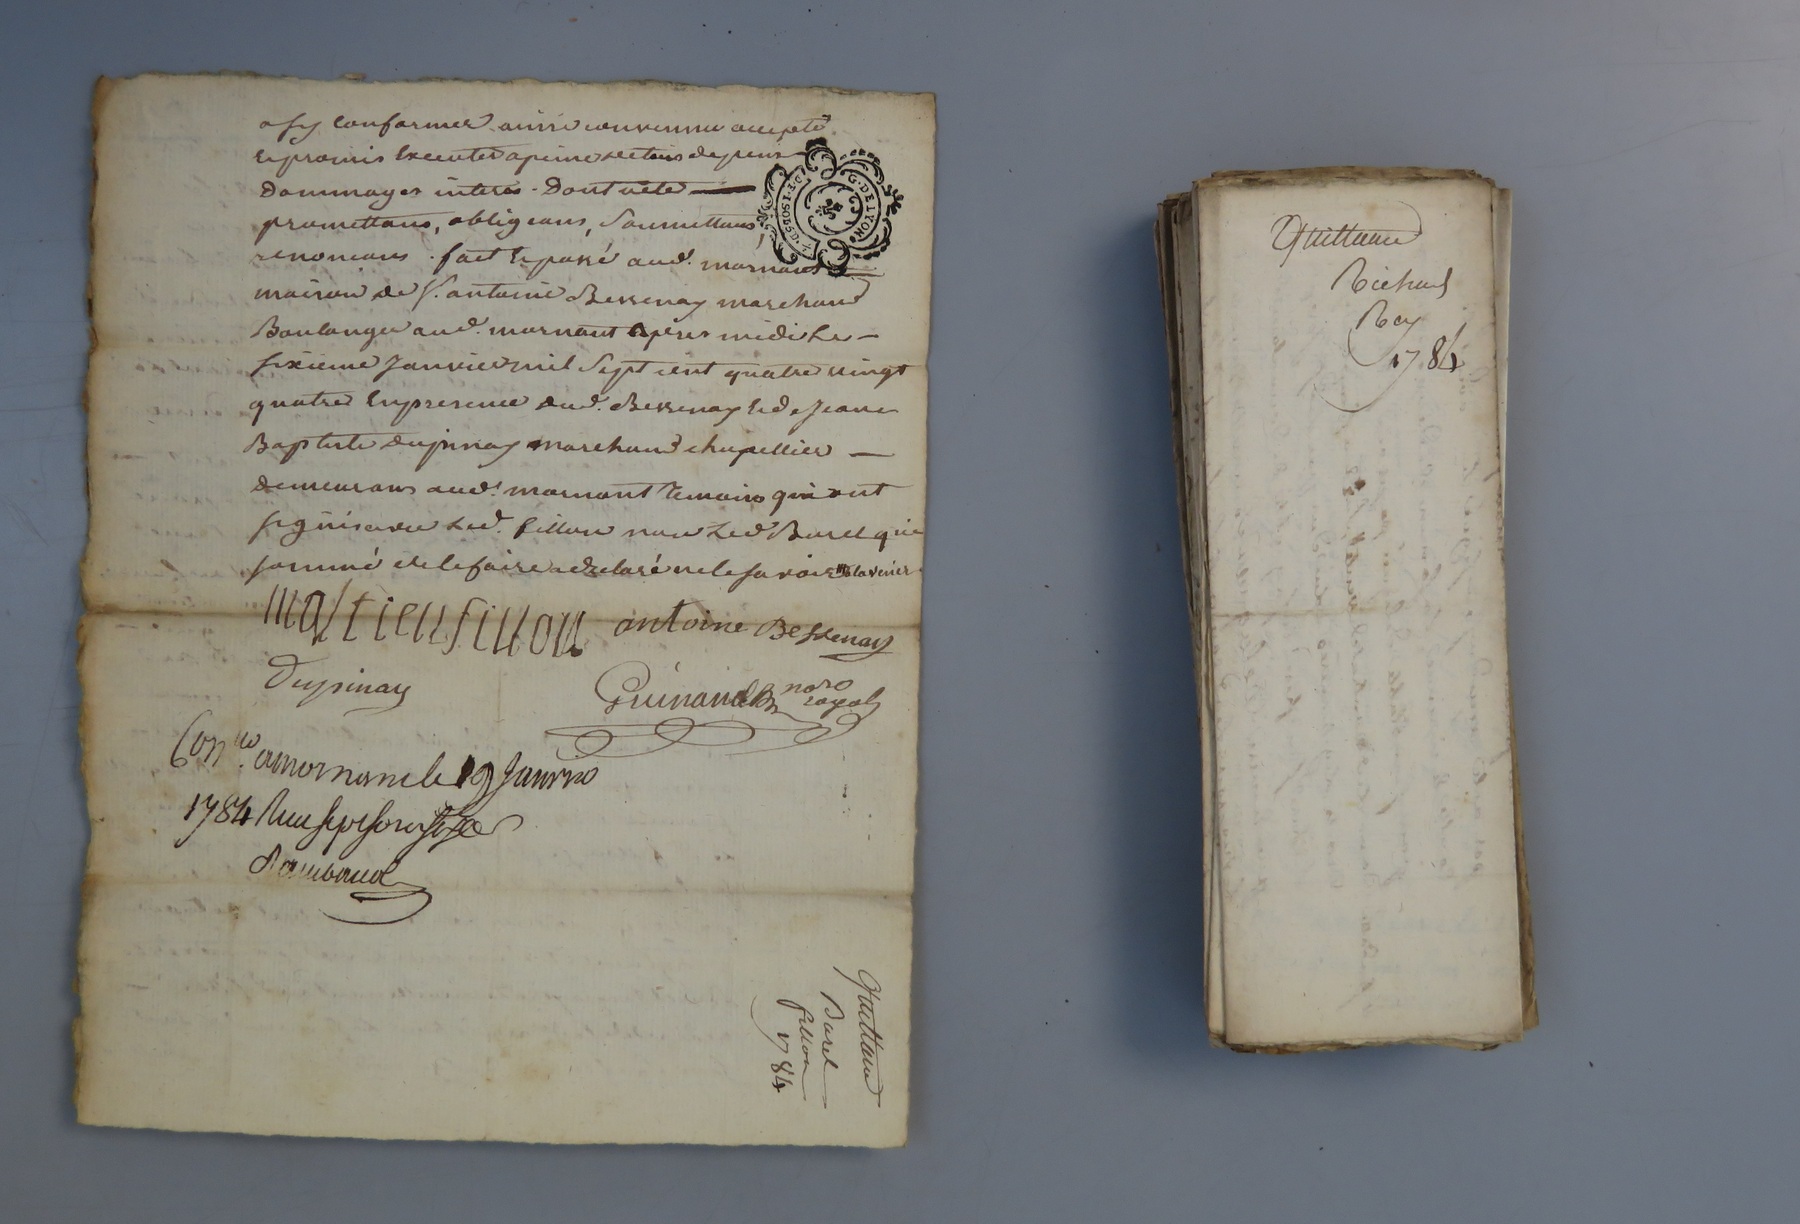 a s'y conformer ainsi convenu accepté
et promis Executer a peine de tous depens
Dommages interes. Dont acte
promettans, obligeans, Soumettans,
renoncans. fait et passé aud. mornant
maison de S. antoine Bessenay marchand
Boulanger aud. mornant apres midi Le
sixieme Janvier mil Sept cent quatre vingt
quatre En presence dud. Bessenay et de Jean
Baptiste dupinay marchand chapellier
demeurans aud. mornant temoins qui ont
signé avec Led. fillion non Led. Burel qui
sommé de le faire a declaré ne le savoir
G. DE LYON
2.S.
matieu fillon antoine Bessenay
Dupinay
Guinand no.re royal
Con.lé a mornan le 19 Janvier
1784 Recu
Rambaud
Quittance
Burel
fillion
1784
Quittance
Richard
Rey
1784